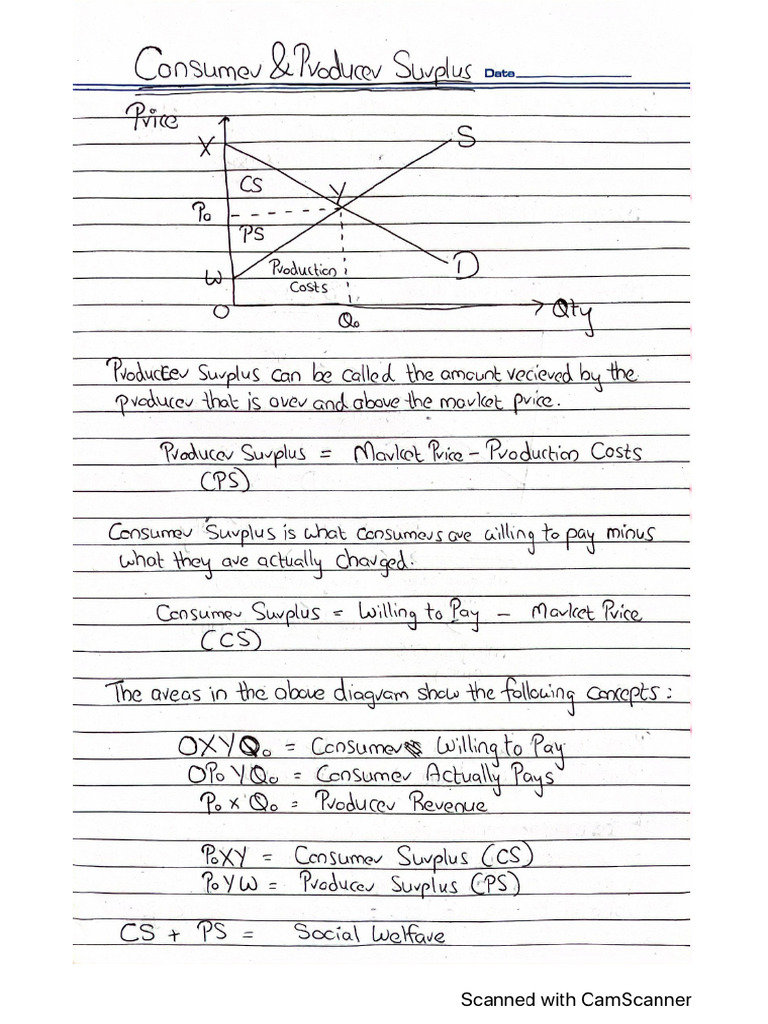 Consumer & Producer Surplus Date
Price
X
S
CS
Y
Po
PS
W
Production
Costs
D
O
Qo
Qty
Producer Surplus can be called the amount recieved by the
producer that is over and above the market price.
Producer Surplus = Market Price - Production Costs
(PS)
Consumer Surplus is what consumers are willing to pay minus
what they are actually charged.
Consumer Surplus = Willing to Pay - Market Price
(CS)
The areas in the above diagram show the following concepts:
OXYQo = Consumers Willing to Pay
OPoYQo = Consumer Actually Pays
Po x Qo = Producer Revenue
PoXY = Consumer Surplus (CS)
PoYW = Producer Surplus (PS)
CS + PS = Social Welfare
Scanned with CamScanner